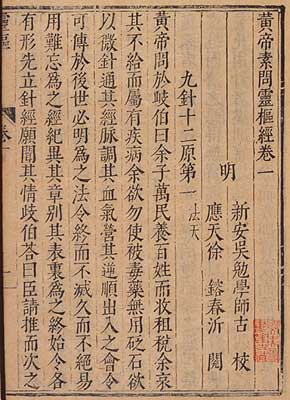 黃帝素問靈樞經卷一
明
新安吳勉學師古校
應天徐鎔春沂閱
九針十二原第一 法天
黃帝問於歧伯曰余子萬民養百姓而收租稅余哀
其不給而屬有疾病余欲勿使被毒藥無用砭石欲
以微針通其經脈調其血氣營其逆順出入之會令
可傳於後世必明為之法令終而不滅久而不絕易
用難忘為之經紀異其章別其表裏為之終始令各
有形先立針經願聞其情歧伯荅曰臣請推而次之